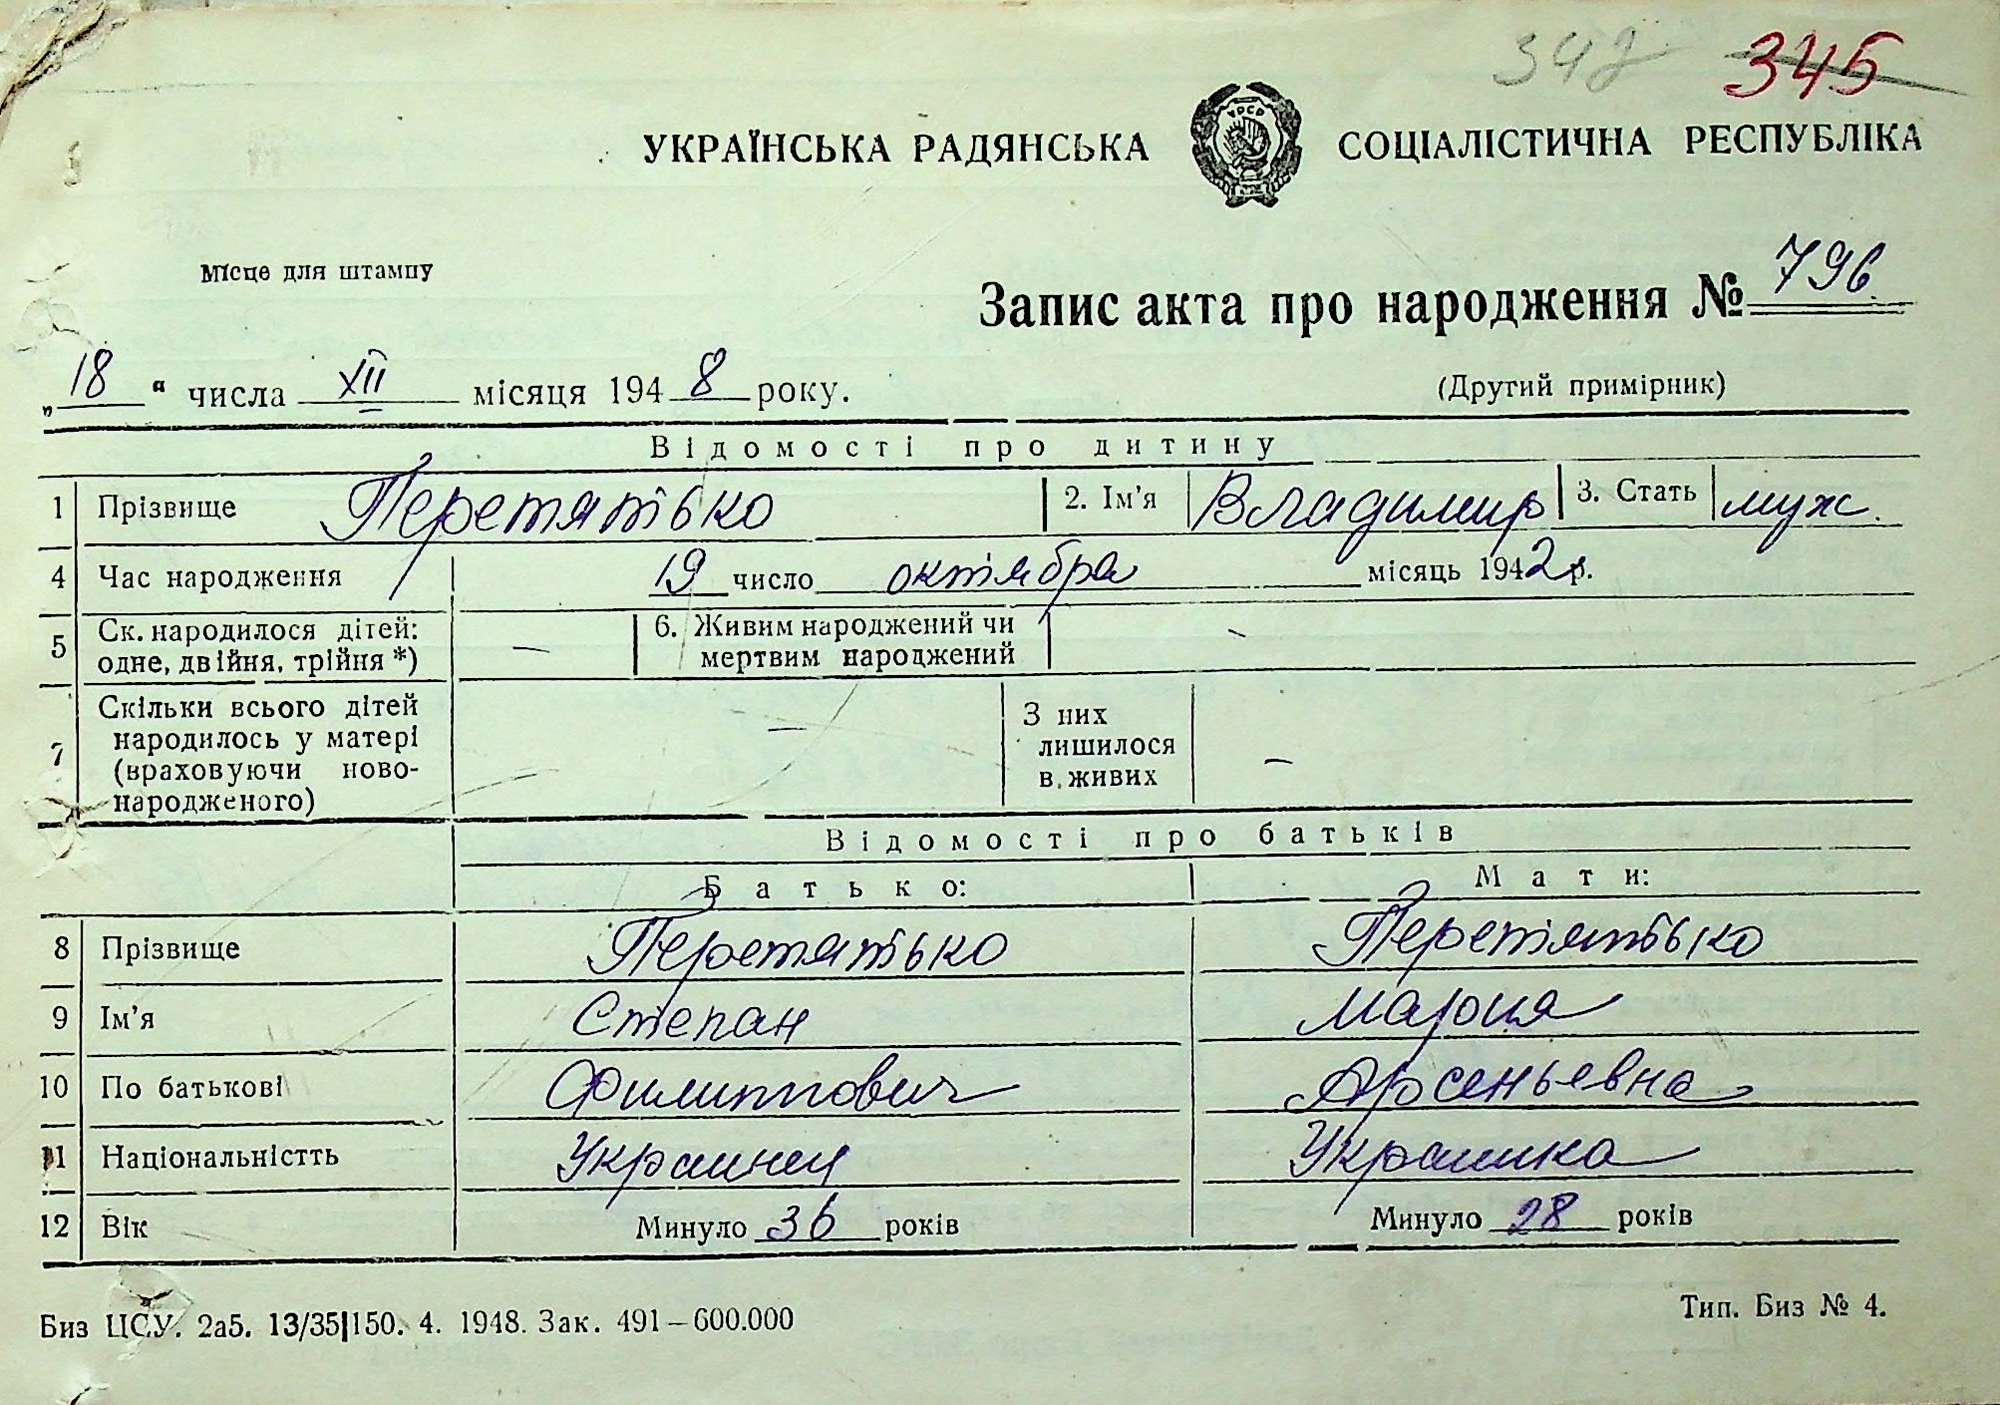 342 345
УКРАЇНСЬКА РАДЯНСЬКА СОЦІАЛІСТИЧНА РЕСПУБЛІКА
УРСР
Місце для штампу
Запис акта про народження № 796
„18“ числа XII місяця 1948 року.
(Другий примірник)
Відомості про дитину
1 Прізвище Перетятько 2. Ім'я Владимир 3. Стать муж.
4 Час народження 19 число октября місяць 1942 р.
5 Ск. народилося дітей: одне, двійня, трійня *) — 6. Живим народжений чи мертвим народжений —
7 Скільки всього дітей народилось у матері (враховуючи ново-народженого) — З них лишилося в живих —
Відомості про батьків
Батько: Мати:
8 Прізвище Перетятько Перетятько
9 Ім'я Степан Мария
10 По батькові Филиппович Арсеньевна
11 Національністть Украинец Украинка
12 Вік Минуло 36 років Минуло 28 років
Биз ЦСУ. 2а5. 13/35|150. 4. 1948. Зак. 491—600.000
Тип. Биз № 4.